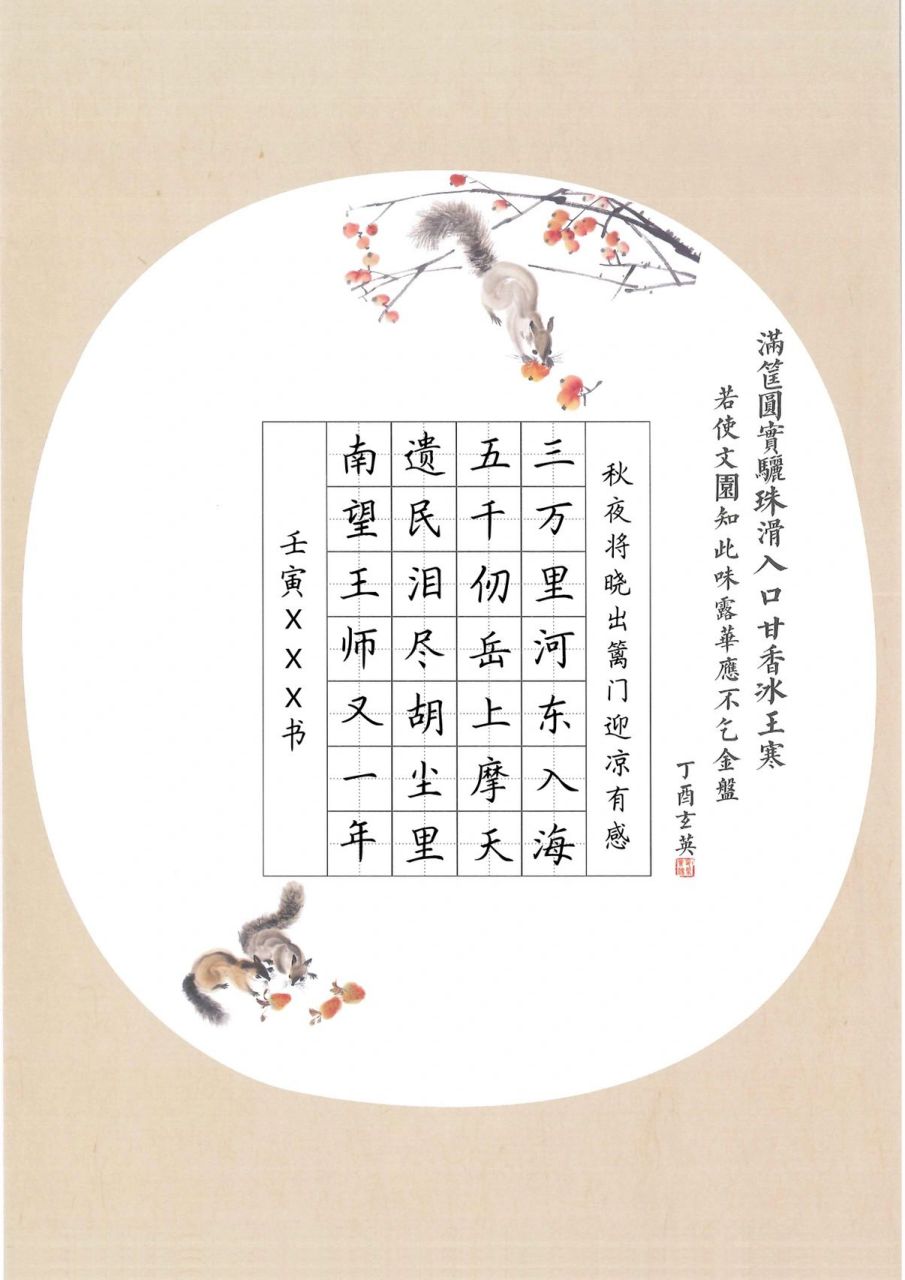 滿筐圓實驪珠滑入口甘香冰王寒
若使文園知此味露華應不乞金盤
丁酉玄英
秋夜将晓出篱门迎凉有感
三万里河东入海
五千仞岳上摩天
遗民泪尽胡尘里
南望王师又一年
壬寅XXX书